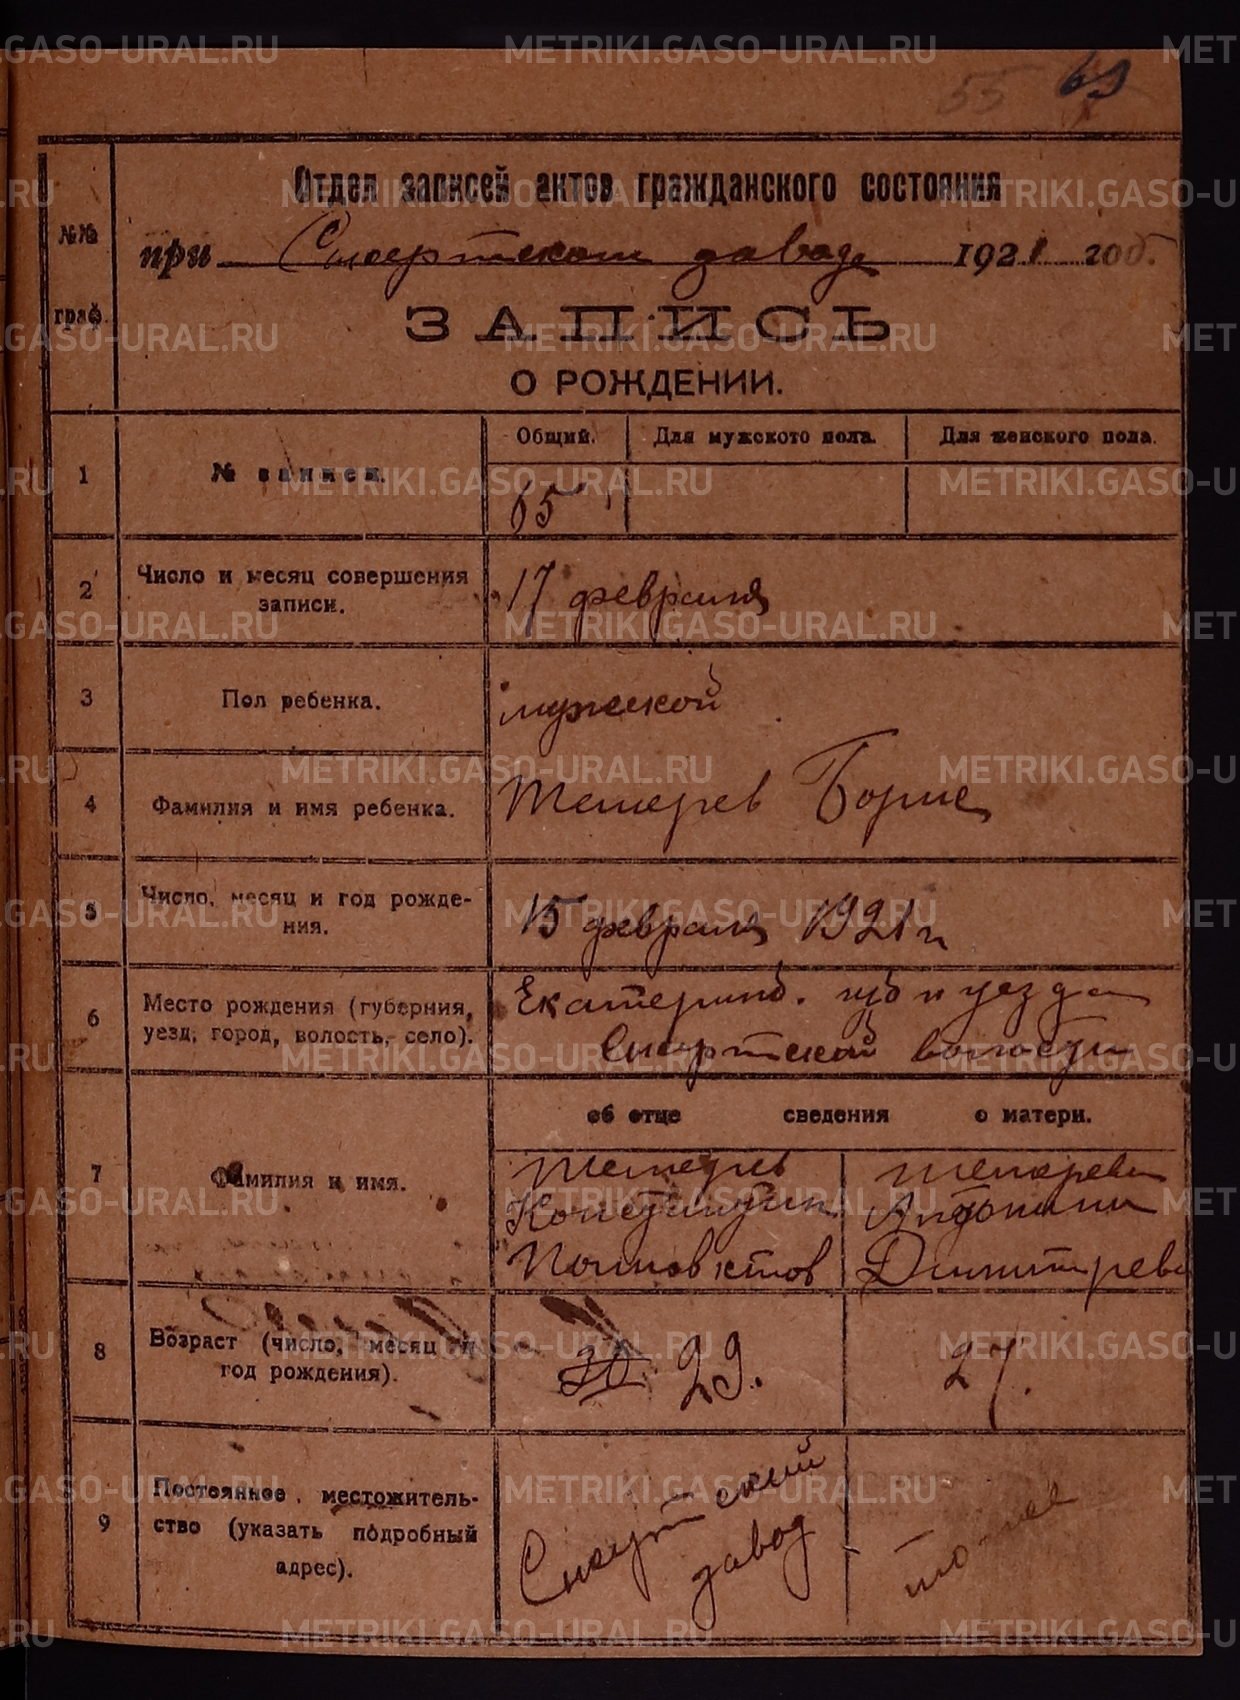 METRIKI.GASO-URAL.RU
55 69
Отдел записей актов гражданского состояния
№№ граф.
при Сысертском заводе 1921 год.
ЗАПИСЬ
О РОЖДЕНИИ.
Общий. Для мужского пола. Для женского пола.
1 № записи. 65
2 Число и месяц совершения
записи. 17 февраля
3 Пол ребенка. мужской
4 Фамилия и имя ребенка. Тетерев Борис
5 Число, месяц и год рожде-
ния. 15 февраля 1921 г
6 Место рождения (губерния,
уезд, город, волость, село). Екатеринб. губ и уезда
Сысертской волости
об отце сведения о матери.
7 Фамилия и имя.
Тетерев
Константин
Тетерева
Антонина
Дмитрев
8 Возраст (число, месяц и
год рождения). 30 29. 27.
9 Постоянное местожитель-
ство (указать подробный
адрес).
Сысертский
завод
то же